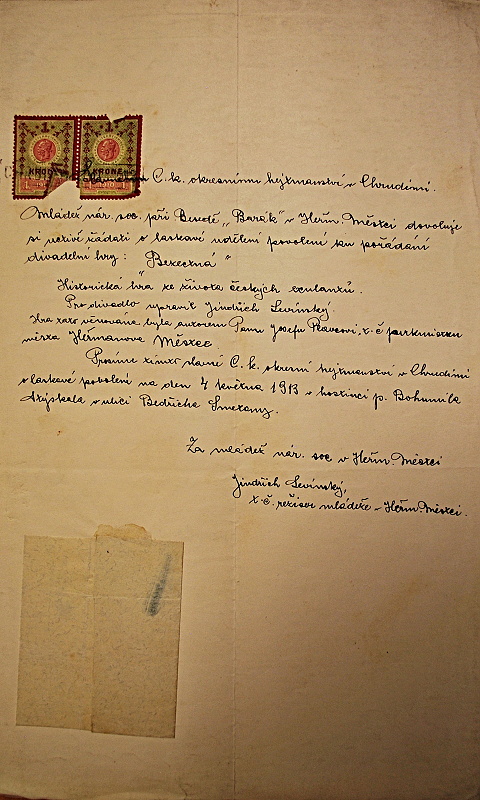 1 1
KRONE KRONE
1 1910 1 1 1910 1
C. k. okresnímu hejtmanství v Chrudimi.
Mládež nár. soc. při Besedě „Barák" v Heřm. Městci dovoluje
si uctivě žádati o laskavé udělení povolení ku pořádání
divadelní hry: „Bezectná"
Historická hra ze života českých exulantů.
Pro divadlo upravil Jindřich Levínský.
Hra tato věnována byla autorem Panu Josefu , t. č. purkmistru
města Heřmanova Městce.
Prosíme tímto slavné C. k. okresní hejtmanství v Chrudimi
o laskavé povolení na den 4 května 1913 v hostinci p. Bohumila
v ulici Bedřicha Smetany.
Za mládež nár. soc. v Heřm. Městci
Jindřich Levínský,
t. č. režisér mládeže – Heřm. Městci.